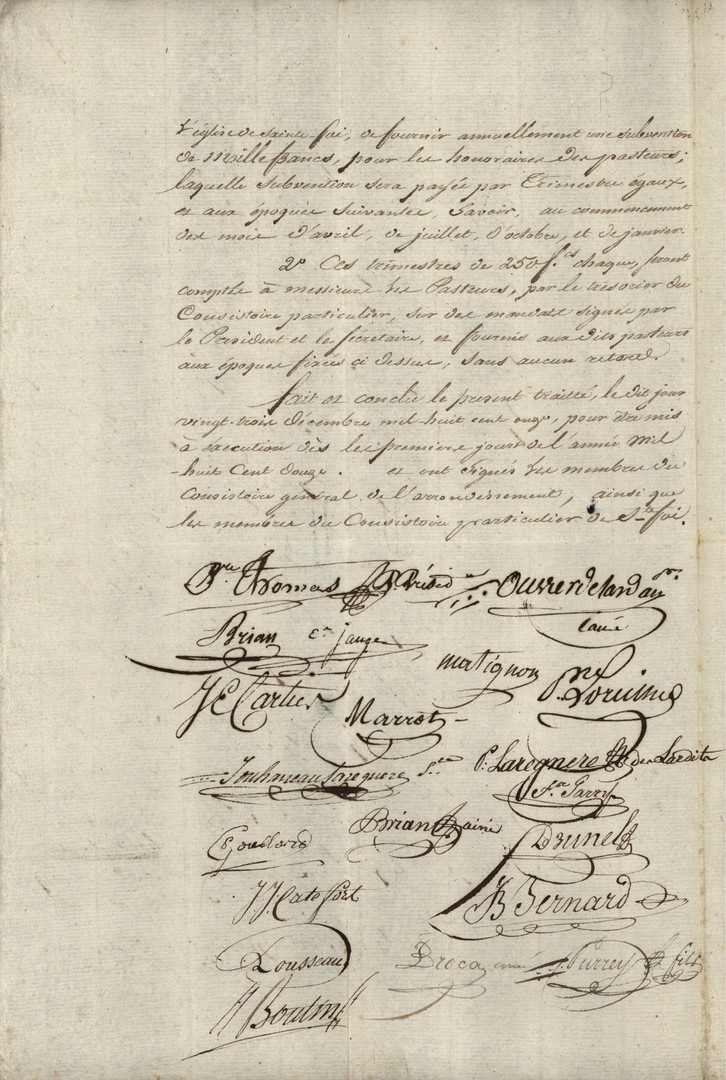 l'église de Sainte-foi, de fournir annuellement une subvention
de Mille francs, pour les honoraires des pasteurs;
laquelle subvention sera payée par Trimestre égaux,
et aux époques suivantes, Savoir, au commencement
des mois d'avril, de juillet, d'octobre, et de janvier.
2.º Ces trimestres de 250.f.cs chaque, seront
comptés à messieurs les Pasteurs, par le trésorier du
Consistoire particulier, sur des mandats signés par
le Président et le secrétaire, et fournis aux dits pasteurs
aux époques fixées ci dessus, sans aucun retard.
fait et conclu le present traitté, le dit jour
vingt-trois décembre mil huit cent onze, pour être mis
à éxécution dès les premiers jours de l'année Mil
huit Cent douze. et ont signés les membres du
Consistoire général de l'arrondissement, ainsi que
les membres du Consistoire particulier de S.te foi.
Thomas Présid
Brian jauge
matignon
J E Cartier
Marrot
P. Laregnere
Brian ainé
Brunet
JB Bernard
Rousseau
Broca ainé
Purrey fils
Boutin